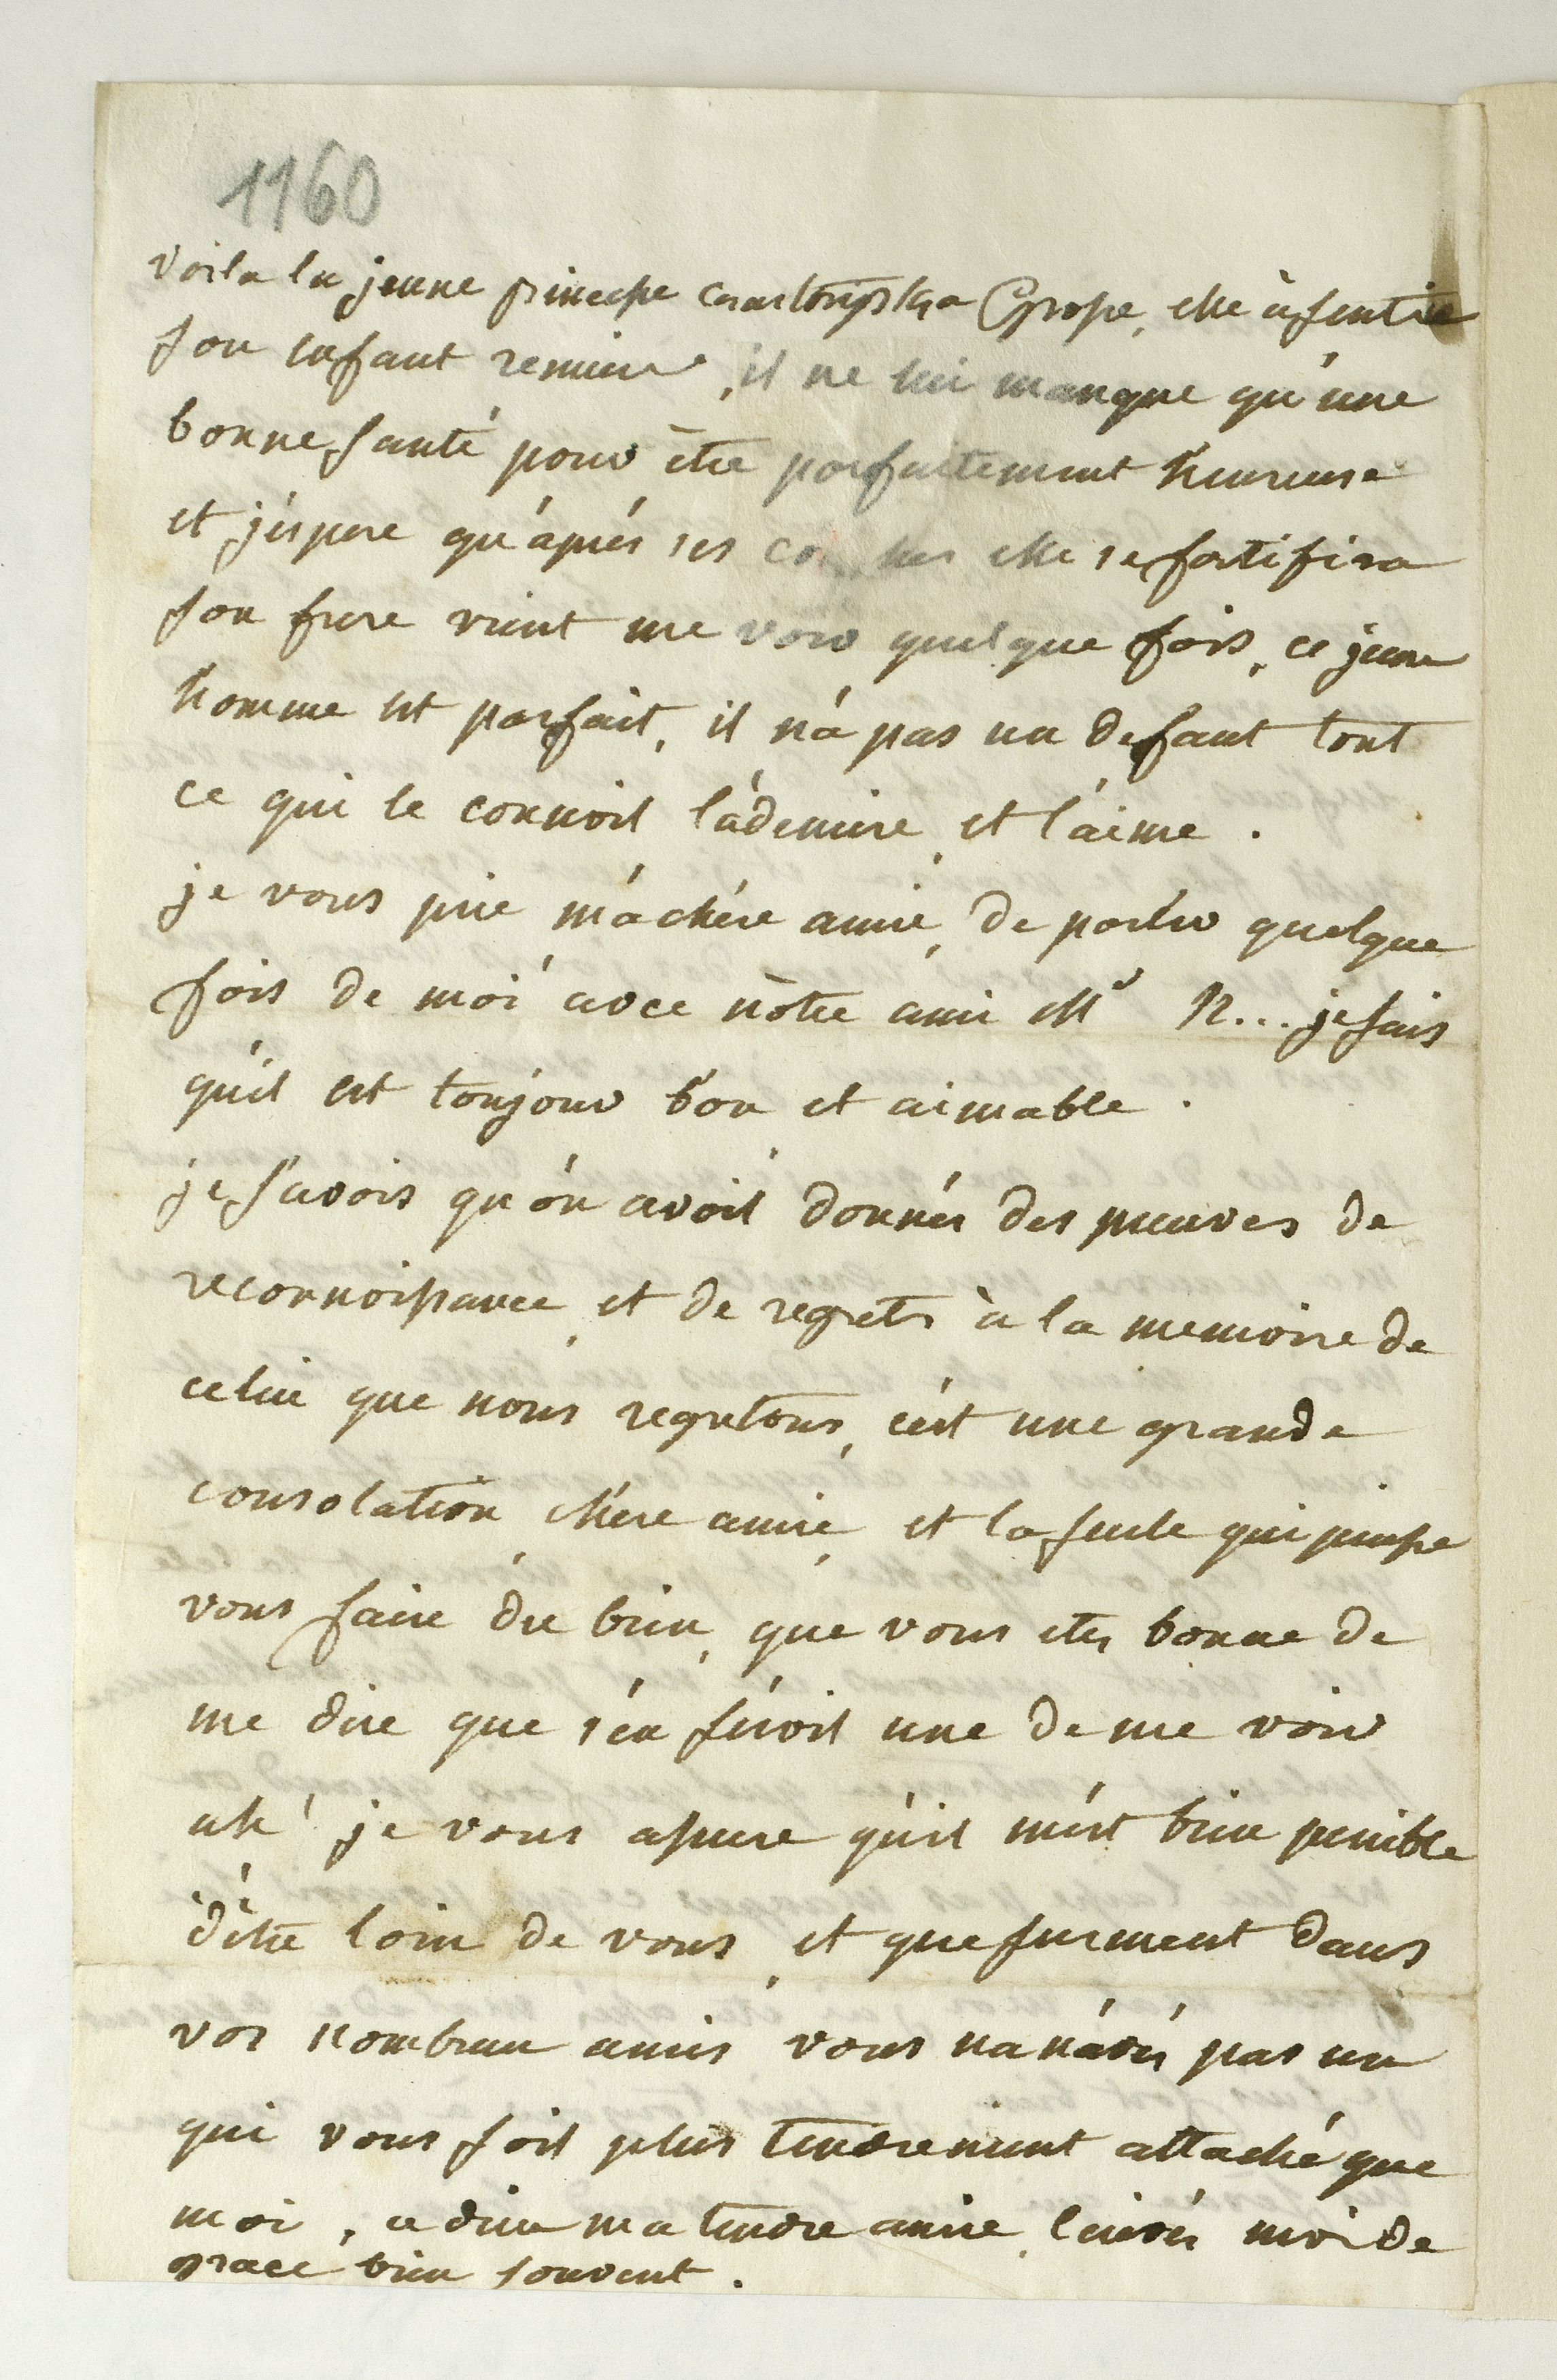 1160
voila la jeune princesse Czartoryska Grosse, elle à sentie
son enfant remuer, il ne lui manque qu'une
bonne santé pour être parfaitement heureuse
et j'éspere qu'áprés ses couches elle se fortifira
son frere vient me voir quelque fois, ce jeune
homme est parfait, il n'á pas un defaut tout
ce qui le connoit l'ádemire, et l'áime .
je vous prie m'a chére amie, de parler quelque
fois de moi avec nôtre ami Mr N... je sais
qu'il est toujour bon et aimable .
je savois qu'ón avoit donnés des preuves de
reconnoissance, et de regrets à la memoire de
celui que nous regretons, c'ést une grande
consolation, chere amie, et la seule qui puisse
vous faire du bien, que vous etes bonne de
me dire que s'én seroit une de me voir
ah! je vous assure qu'il m'ést bien penible
d'être loin de vous, et que surment dans
vos nombreu amis vous na n'ávés pas un
qui vous soit plus tendrement attaché que
moi, adieu ma tendre amie, écrivés moi de
grace bien souvent .